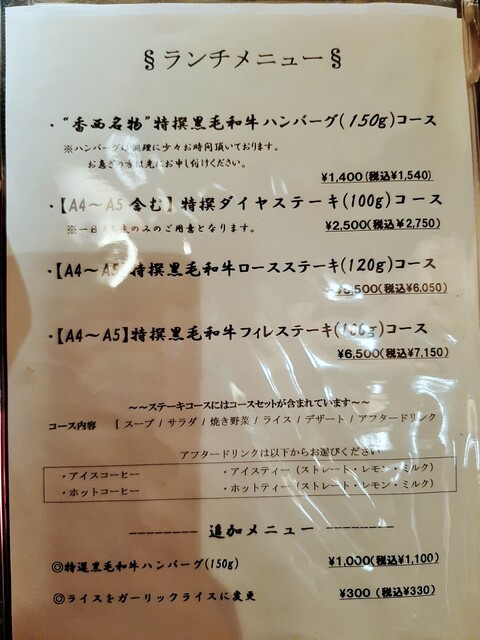 §ランチメニュー§
・“香西名物”特撰黒毛和牛ハンバーグ(150g)コース
※ハンバーグは調理に少々お時間頂いております。
お急ぎの方は先にお申し付けください。
¥1,400(税込¥1,540)
・【A4～A5含む】特撰ダイヤステーキ(100g)コース
※一日 食のみのご用意となります。
¥2,500(税込¥2,750)
・【A4～A5】特撰黒毛和牛ロースステーキ(120g)コース
¥5,500(税込¥6,050)
・【A4～A5】特撰黒毛和牛フィレステーキ(100g)コース
¥6,500(税込¥7,150)
～～ステーキコースにはコースセットが含まれています～～
コース内容 [ スープ / サラダ / 焼き野菜 / ライス / デザート / アフタードリンク
アフタードリンクは以下からお選びください
・アイスコーヒー ・アイスティー（ストレート・レモン・ミルク）
・ホットコーヒー ・ホットティー（ストレート・レモン・ミルク）
-------- 追加メニュー --------
◎特選黒毛和牛ハンバーグ(150g) ¥1,000(税込¥1,100)
◎ライスをガーリックライスに変更 ¥300 (税込¥330)